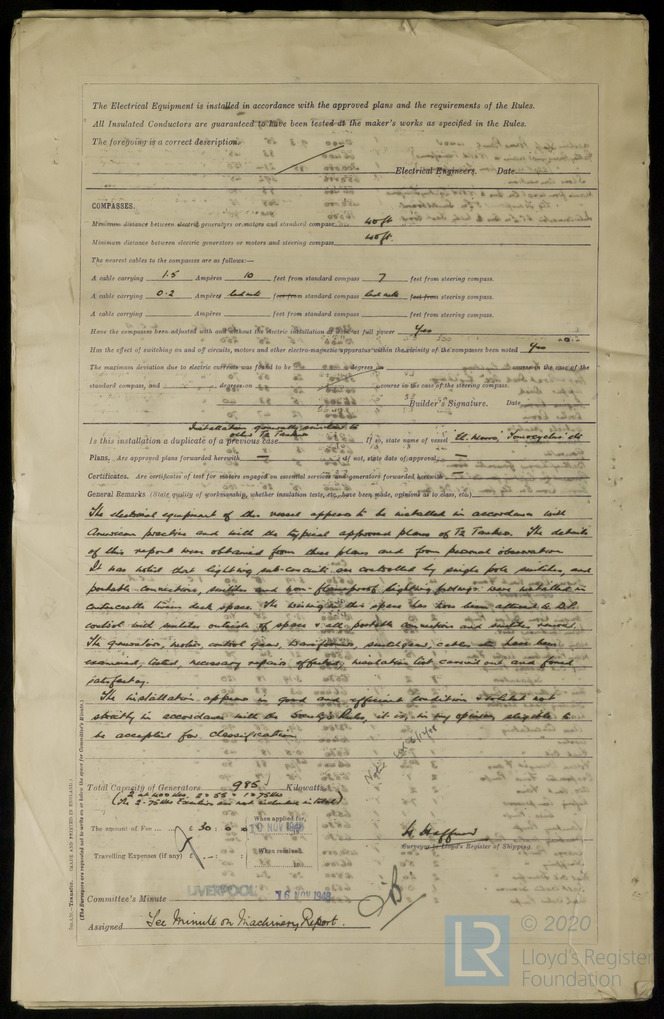 The Electrical Equipment is installed in accordance with the approved plans and the requirements of the Rules.
All Insulated Conductors are guaranteed to have been tested at the maker's works as specified in the Rules.
The foregoing is a correct description.
Electrical Engineers. Date
COMPASSES.
Minimum distance between electric generators or motors and standard compass 40 ft
Minimum distance between electric generators or motors and steering compass 40 ft.
The nearest cables to the compasses are as follows:—
A cable carrying 1.5 Ampères 10 feet from standard compass 7 feet from steering compass.
A cable carrying 0.2 Ampères led into feet from standard compass led into feet from steering compass.
A cable carrying Ampères feet from standard compass feet from steering compass.
Have the compasses been adjusted with and without the electric installation at work at full power Yes
Has the effect of switching on and off circuits, motors and other electro-magnetic apparatus within the vicinity of the compasses been noted Yes
The maximum deviation due to electric currents was found to be degrees on course in the case of the
standard compass, and degrees on course in the case of the steering compass.
Builder's Signature. Date
Installation generally similar to
other T2 Tankers
Is this installation a duplicate of a previous case If so, state name of vessel
Plans. Are approved plans forwarded herewith — If not, state date of approval —
Certificates. Are certificates of test for motors engaged on essential services and generators forwarded herewith
General Remarks (State quality of workmanship, whether insulation tests, etc., have been made, opinions as to class, etc.)
The electrical equipment of this vessel appears to be installed in accordance with
American practice and with the typical approved plans of T2 Tankers. The details
of this report were obtained from these plans and from personal observation
It was noted that lighting sub-circuits are controlled by single pole switches, and
portable connections, switches and non-flameproof lighting fittings were installed in
space. The wiring in this space has now been altered to D.P.
control with switches outside of space & all portable connections and switches removed.
The generators, motors, control gear, transformers, switchgear, cables etc have been
examined, tested, necessary repairs effected, insulation test carried out and found
satisfactory.
The installation appears in good and efficient condition & whilst not
strictly in accordance with the Society's Rules, it is, in my opinion, eligible to
be accepted for classification
Total Capacity of Generators 985 Kilowatts.
The amount of Fee £ 30 : 0 : 0 When applied for, 10 NOV 1948
Travelling Expenses (if any) £ : : When received,
Surveyor to Lloyd's Register of Shipping.
Committee's Minute LIVERPOOL 16 NOV 1948
Assigned See Minute on Machinery Report.
(The Surveyors are requested not to write on or below the space for Committee's Minute.)
© 2020
LR
Lloyd's Register
Foundation